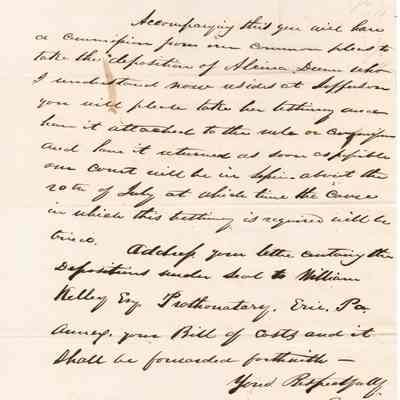 Accompanying this you will have
a commission from our common pleas to
take the deposition of Alvina Dunn who
I understand now resides at Jefferson
you will please take her testimony and
have it attached to the rule or commission
and have it returned as soon as possible
our Court will be in Session about the
20th of July at which time the Cause
in which this testimony is required will be
tried.
Address your letter containing the
Depositions under Seal to William
Kelley Esq Prothonotary, Erie, Pa
annex your Bill of Costs and it
Shall be forwarded forthwith —
Yours Respectfully